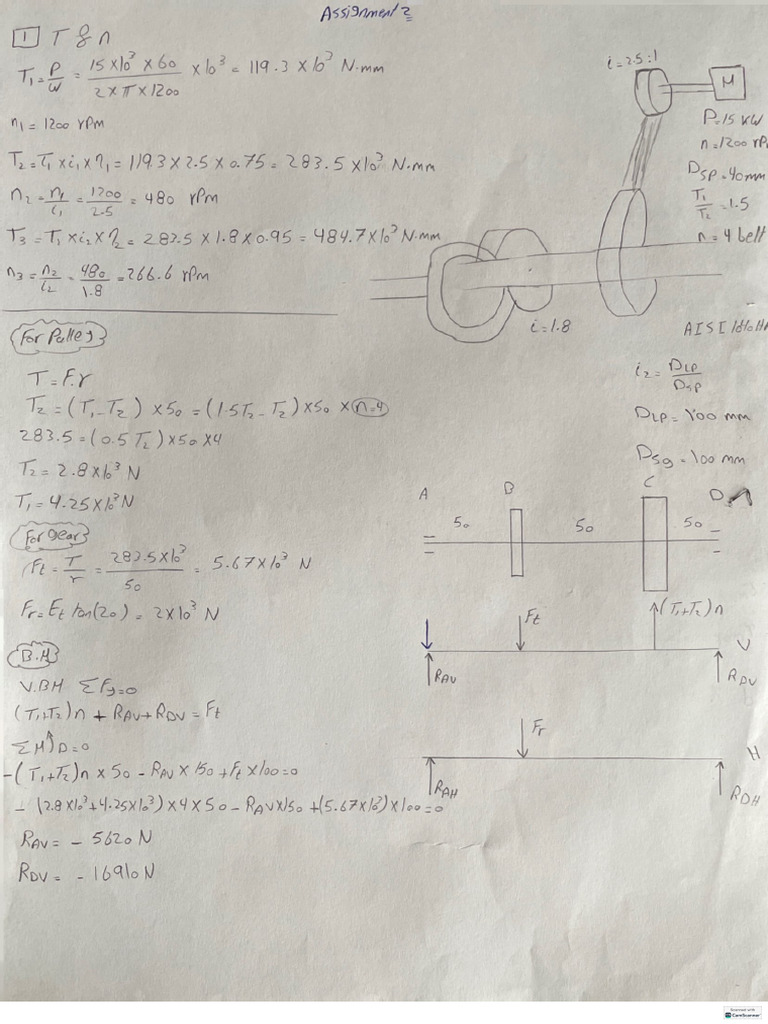 Assignment 2
1 T & n
T₁ = P/W = 15 x 10³ x 60 / 2 x π x 1200 x 10³ = 119.3 x 10³ N.mm
n₁ = 1200 rpm
T₂ = T₁ x i₁ x η₁ = 119.3 x 2.5 x 0.75 = 283.5 x 10³ N.mm
n₂ = n₁/i₁ = 1200/2.5 = 480 rpm
T₃ = T₁ x i₂ x η₂ = 283.5 x 1.8 x 0.95 = 484.7 x 10³ N.mm
n₃ = n₂/i₂ = 480/1.8 = 266.6 rpm
i = 2.5:1
M
P=15 kW
n=1200 rp
Dsp = 40mm
T₁/T₂ = 1.5
n = 4 belt
i=1.8
AISI
For Pulley
T = F.r
T₂ = (T₁ - T₂) x 50 = (1.5T₂ - T₂) x 50 x n=4
283.5 = (0.5 T₂) x 50 x 4
T₂ = 2.8 x 10³ N
T₁ = 4.25 x 10³ N
i₂ = DLP/DSP
DLP = 100 mm
Dsg = 100 mm
For gear
Ft = T/r = 283.5 x 10³ / 50 = 5.67 x 10³ N
Fr = Ft tan(20) = 2 x 10³ N
A B C D
50 50 50
B.M
V.BM ΣFy=0
(T₁+T₂)n + RAV + RDV = Ft
ΣM)D=0
-(T₁+T₂)n x 50 - RAV x 150 + Ft x 100 = 0
- (2.8 x 10³ + 4.25 x 10³) x 4 x 50 - RAV x 150 + (5.67 x 10³) x 100 = 0
RAV = - 5620 N
RDV = - 16910 N
Ft (T₁+T₂)n
V
RAV RDV
Fr
H
RAH RDH
Scanned with
CamScanner